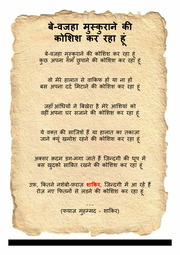 बे-वजहा मुस्कुराने की
कोशिश कर रहा हूं
बे-वजहा मुस्कुराने की कोशिश कर रहा हूं
कुछ अपना गम छुपाने की कोशिश कर रहा हूं
वो मेरे हालात से वाकिफ हो या ना हो
बस अपना दर्द मिटाने की कोशिश कर रहा हूं
जहाँ आंधियों ने बिखेरा है मेरे आशियां को
वहीं अपना घर सजाने की कोशिश कर रहा हूं
ये वक्त की साजिशें हैं या हालात का तकाजा
जाने क्यूं खामोश रहने की कोशिश कर रहा हूं
अक्सर कदम डग-मगा जाते हैं जिन्दगी की धूप में
बस खुदको साबित रखने की कोशिश कर रहा हूं
उफ़, कितने नशेबो-फराज़ शाकिर, ज़िन्दगी में आ रहे हैं
रोज़ नए फितनों से लड़ने की कोशिश कर रहा हूं
...
(फयाज़ मुहम्मद - शाकिर)